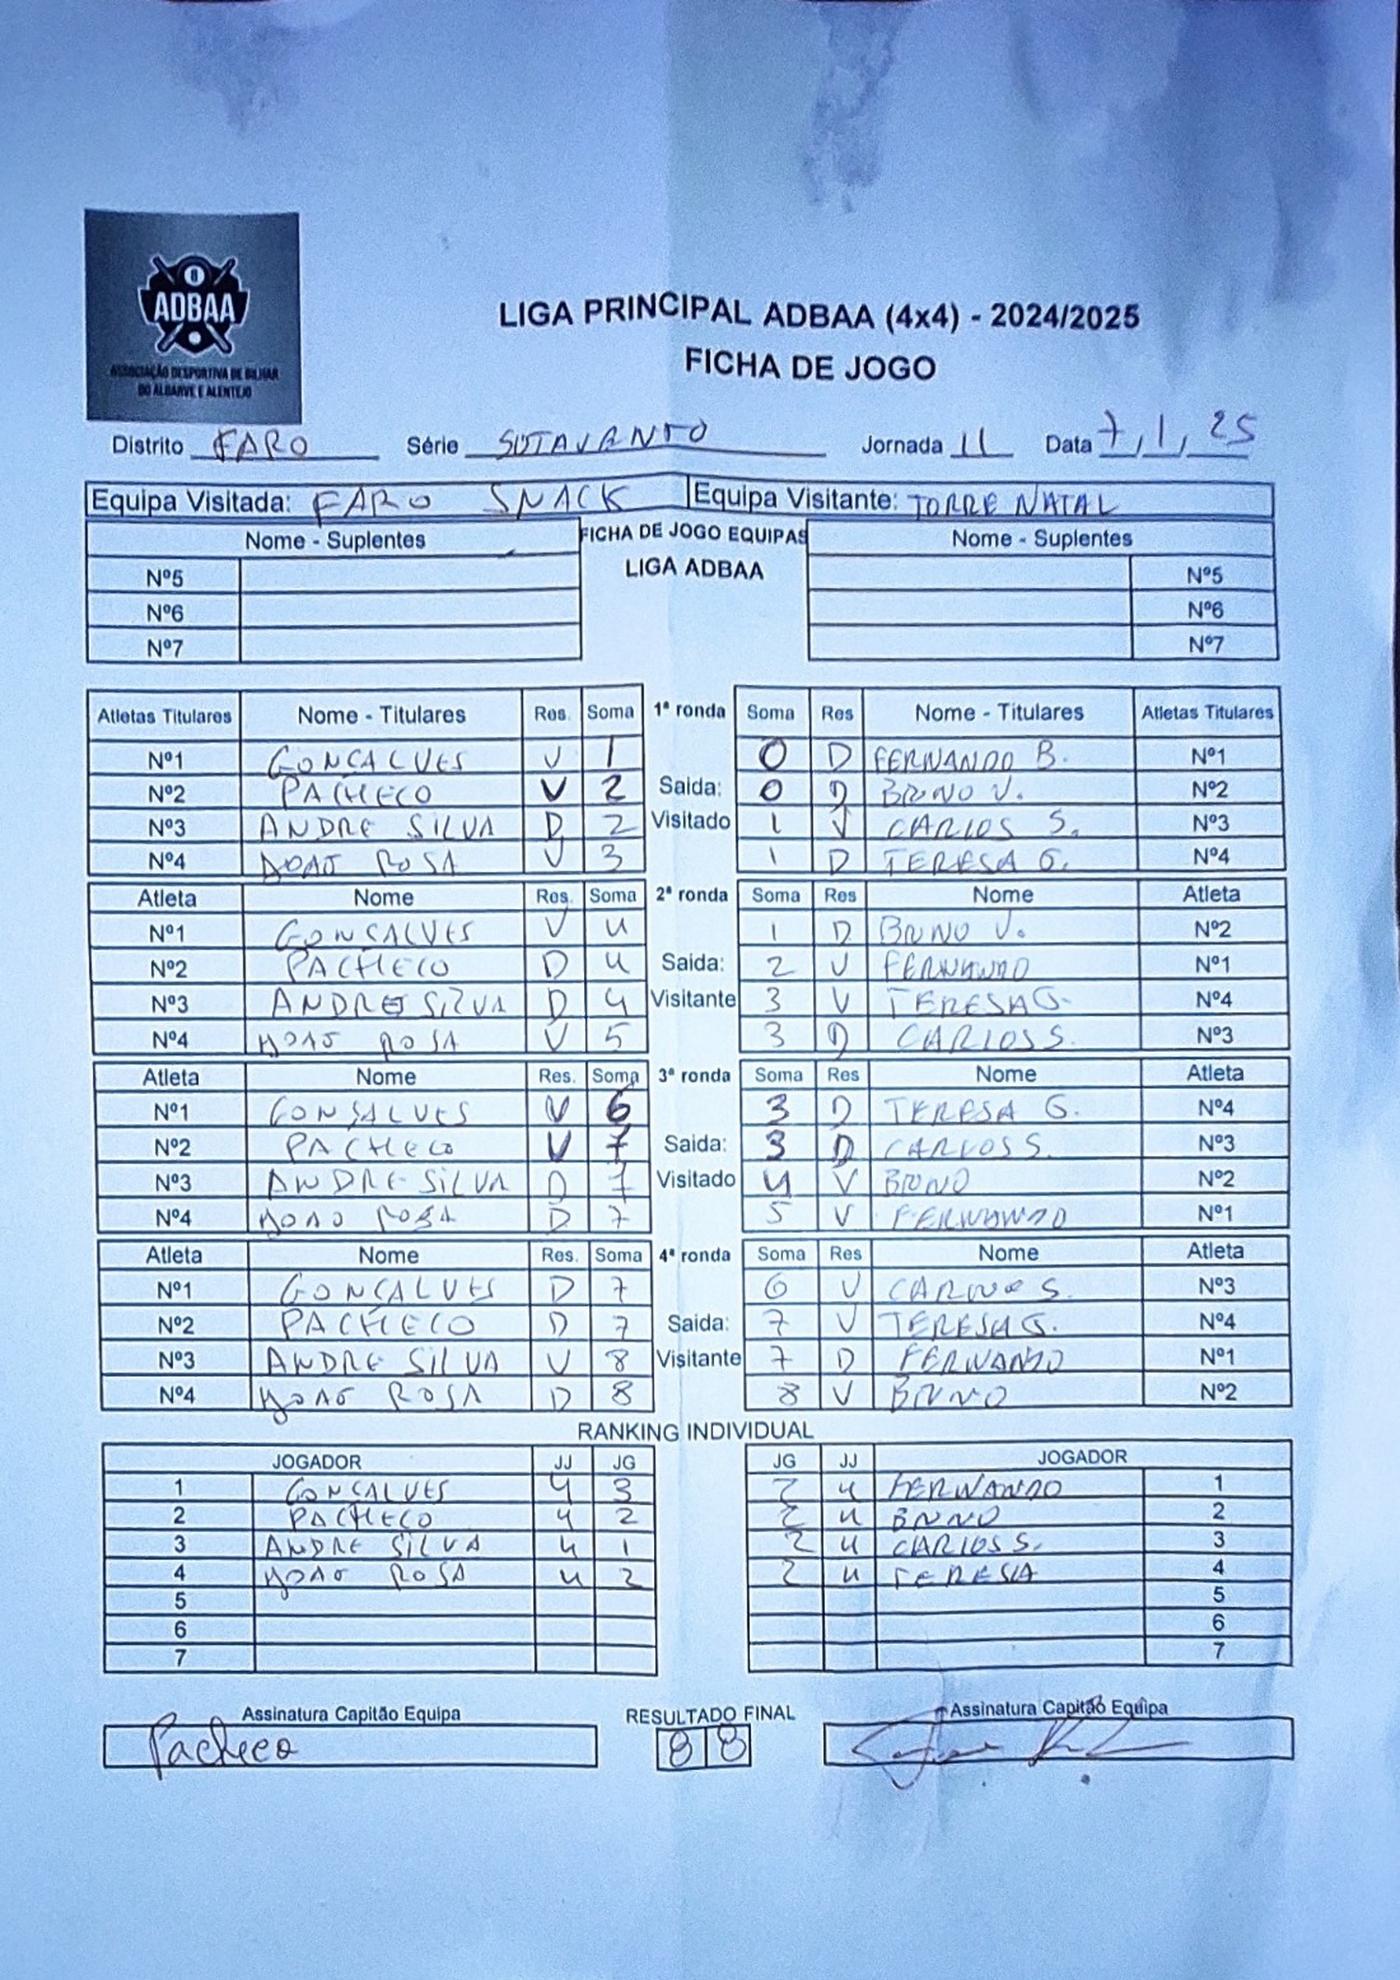 ADBAA
ASSOCIAÇÃO DESPORTIVA DE BILHAR
DO ALGARVE E ALENTEJO
LIGA PRINCIPAL ADBAA (4x4) - 2024/2025
FICHA DE JOGO
Distrito FARO Série SOTAVANTO Jornada 11 Data 7, 1, 25
Equipa Visitada: FARO SNACK Equipa Visitante: TORRE NATAL
Nome - Suplentes FICHA DE JOGO EQUIPAS Nome - Suplentes
Nº5 LIGA ADBAA Nº5
Nº6 Nº6
Nº7 Nº7
Atletas Titulares Nome - Titulares Res. Soma 1ª ronda Soma Res Nome - Titulares Atletas Titulares
Nº1 GONSALVES V 1 0 D FERNANDO B. Nº1
Nº2 PACHECO V 2 Saida: 0 D BRUNO V. Nº2
Nº3 ANDRE SILVA D 2 Visitado 1 V CARLOS S. Nº3
Nº4 JOAO ROSA V 3 1 D TERESA G. Nº4
Atleta Nome Res. Soma 2ª ronda Soma Res Nome Atleta
Nº1 GONSALVES V 4 1 D BRUNO V. Nº2
Nº2 PACHECO D 4 Saida: 2 V FERNANDO Nº1
Nº3 ANDRE SILVA D 4 Visitante 3 V TERESA G. Nº4
Nº4 JOAO ROSA V 5 3 D CARLOS S. Nº3
Atleta Nome Res. Soma 3ª ronda Soma Res Nome Atleta
Nº1 GONSALVES V 6 3 D TERESA G. Nº4
Nº2 PACHECO V 7 Saida: 3 D CARLOS S. Nº3
Nº3 ANDRE SILVA D 7 Visitado 4 V BRUNO Nº2
Nº4 JOAO ROSA D 7 5 V FERNANDO Nº1
Atleta Nome Res. Soma 4ª ronda Soma Res Nome Atleta
Nº1 GONSALVES D 7 6 V CARLOS S. Nº3
Nº2 PACHECO D 7 Saida: 7 V TERESA G. Nº4
Nº3 ANDRE SILVA V 8 Visitante 7 D FERNANDO Nº1
Nº4 JOAO ROSA D 8 8 V BRUNO Nº2
RANKING INDIVIDUAL
JOGADOR JJ JG JG JJ JOGADOR
1 GONSALVES 4 3 2 4 FERNANDO 1
2 PACHECO 4 2 2 4 BRUNO 2
3 ANDRE SILVA 4 1 2 4 CARLOS S. 3
4 JOAO ROSA 4 2 2 4 TERESA 4
5 5
6 6
7 7
Assinatura Capitão Equipa RESULTADO FINAL Assinatura Capitão Equipa
Pacheco 8 8